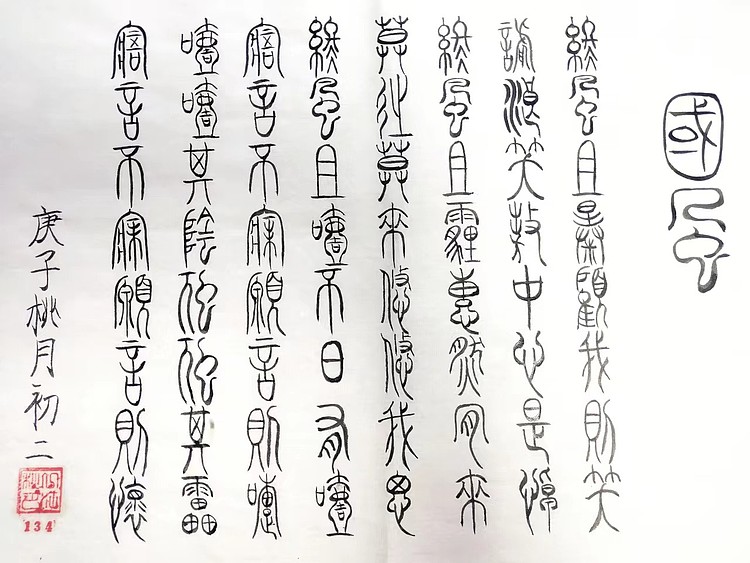 國風
終風且暴顧我則笑
謔浪笑敖中心是悼
終風且霾惠然肯來
莫往莫來悠悠我思
終風且曀不日有曀
寤言不寐願言則嚏
曀曀其陰虺虺其雷
寤言不寐願言則懷
庚子桃月初二
134